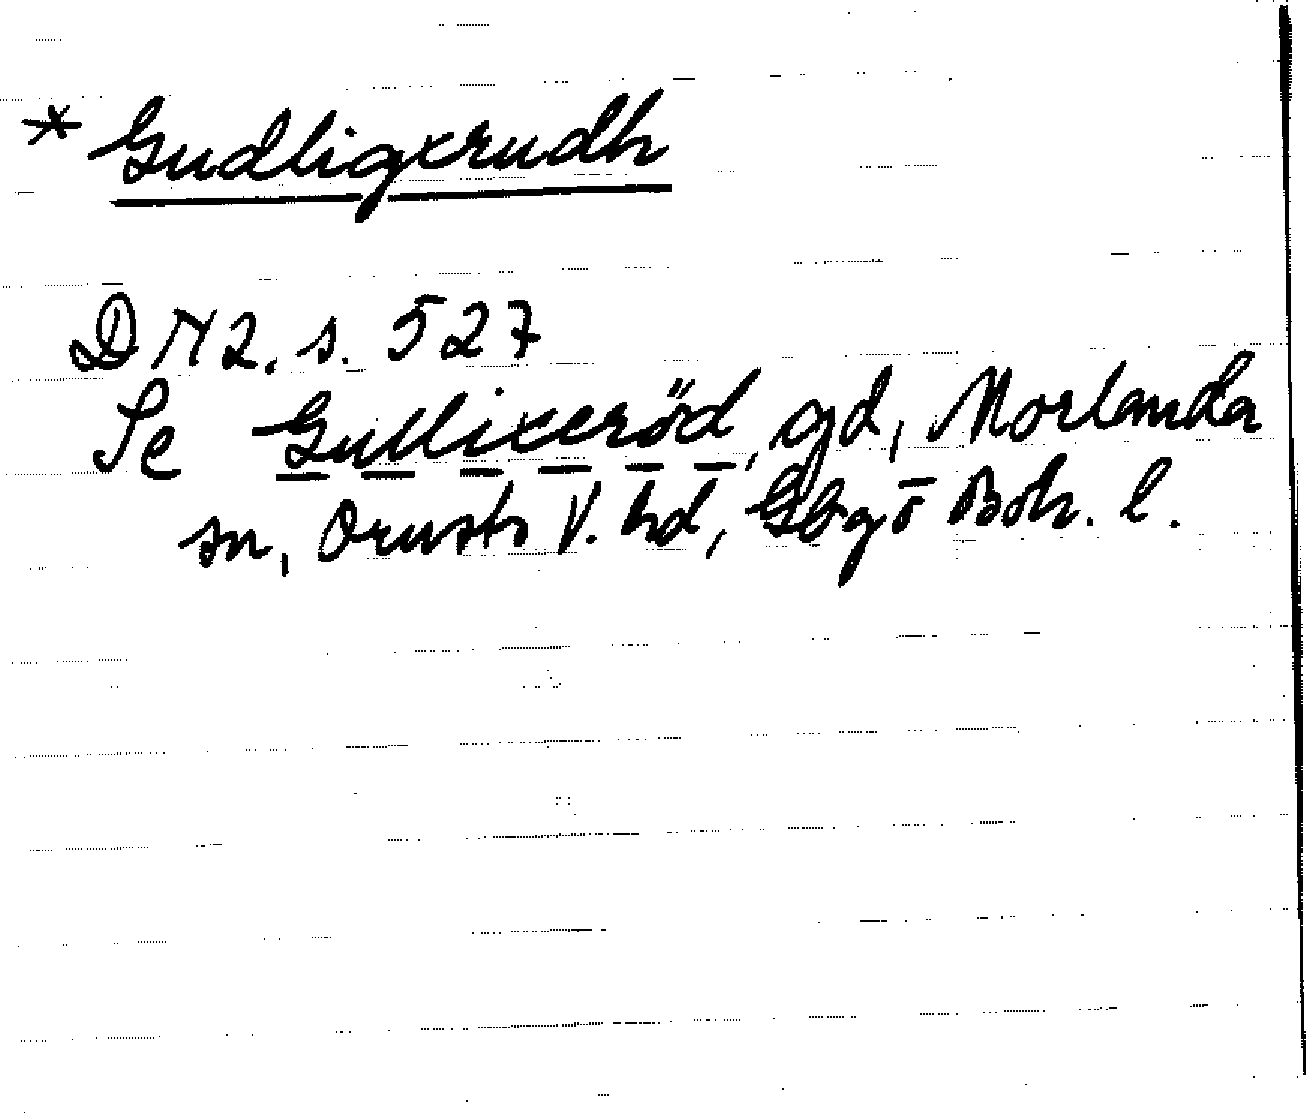 * Gudligxrudh
DN 2. s. 527
Se Gullixeröd, gd, Morlanda
sn, Orusts V. hd, Gbg o Boh. l.